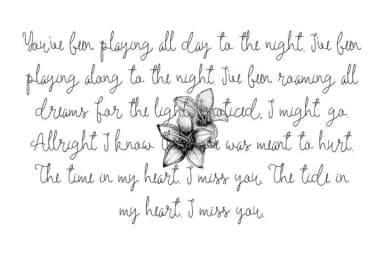 You've been playing all day to the night, I've been
playing along to the night, I've been roaming all
dreams for the light noticed, I might go.
Allright I know was meant to hurt.
The time in my heart, I miss you, The tide in
my heart, I miss you,